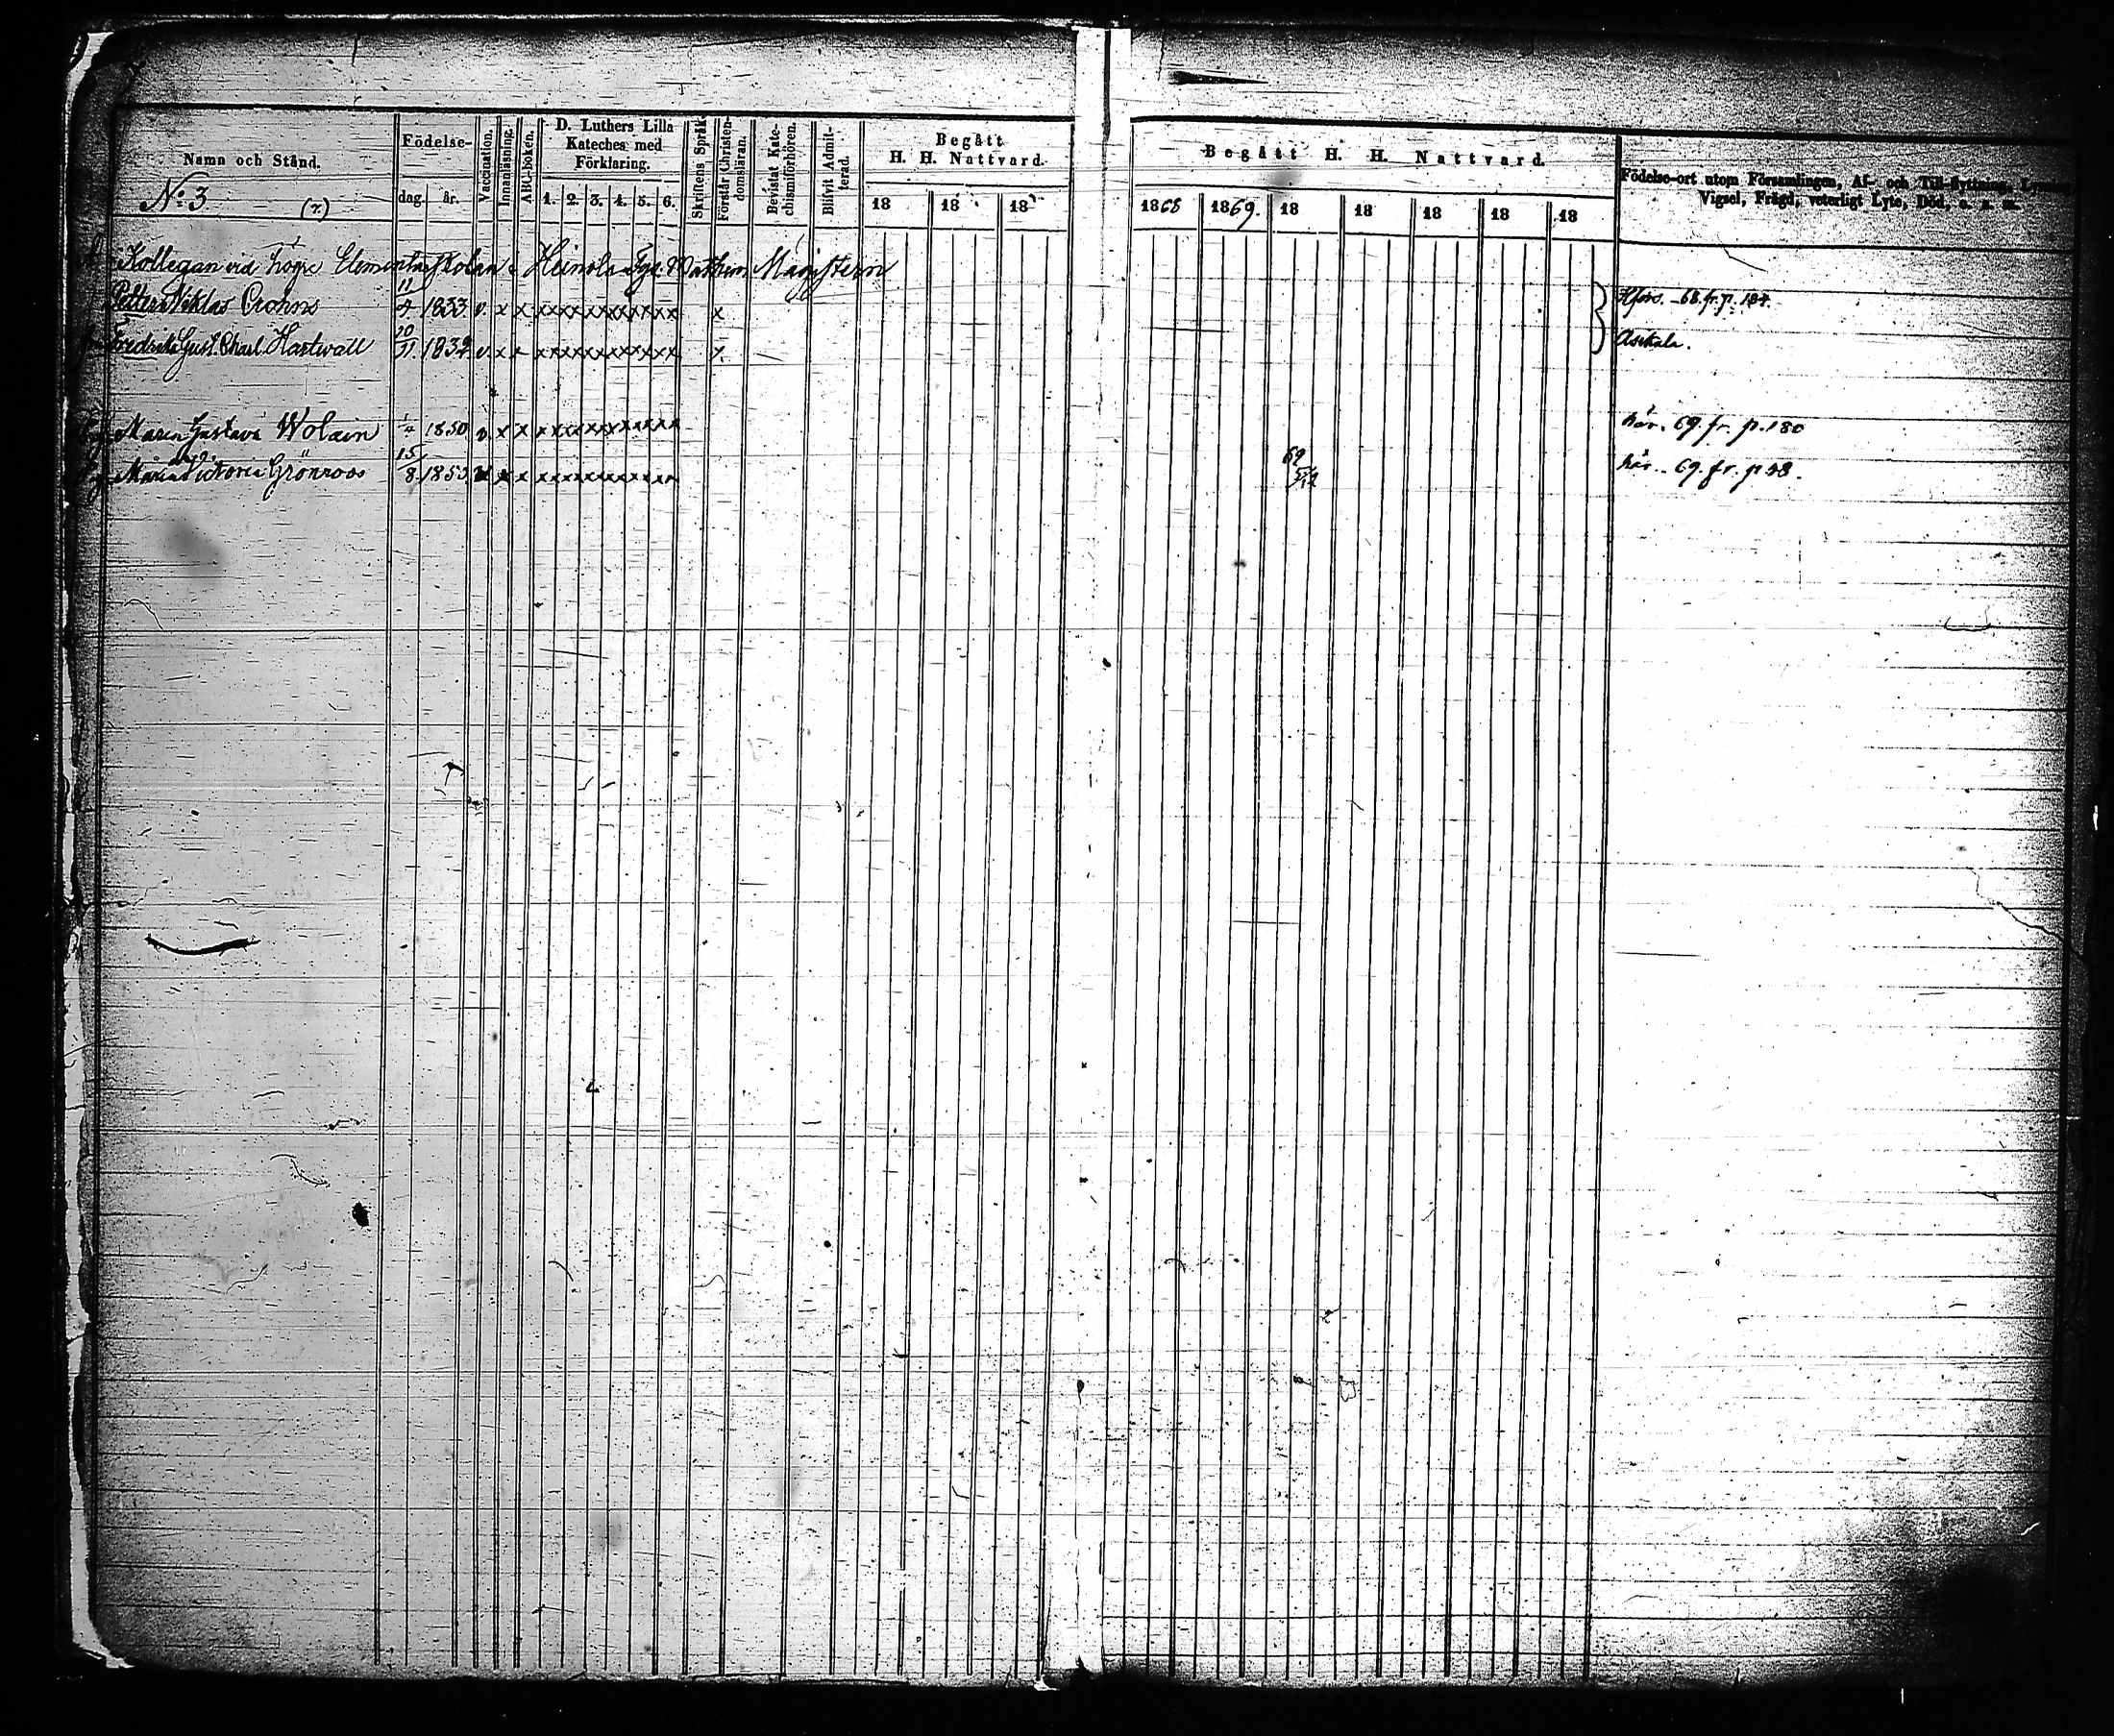 Namn och Stånd.
Födelse-
dag. år.
Vaccination.
Innanläsning.
ABC-boken.
D. Luthers Lilla
Kateches med
Förklaring.
1. 2. 3. 4. 5. 6.
Skriftens Språk
Förstår Christen-
domsläran.
Bevistat Kate-
chismiförhören.
Blifvit Admit-
terad.
Begått
H. H. Nattvard.
18 18 18
Begått H. H. Nattvard.
1868 1869. 18 18 18 18 18
Födelse-ort utom Församlingen, Af- och Till-flyttning,
Vigsel, Frägd, veterligt Lyte, Död, o. s. m.
No. 3
Kollegan vid högre Elementarskolan i Heinola Magistern
Petter Niklas Crohns 11/4 1833 v. x x xxxxxxxxxxxx x Hfors. 68. fr. p. 184.
Fredrika Gust. Charl. Hartwall 1832 v. x x xxxxxxxxxxxx x Asikala.
Maria Gustava Wolain 1/4 1850 v x x xxxxxxxxxxxx här. 69. fr. p. 180
Maria Victoria Grönroos 15/8 1853 x x xxxxxxxxxxxx 69 här. 69. fr. p 48.